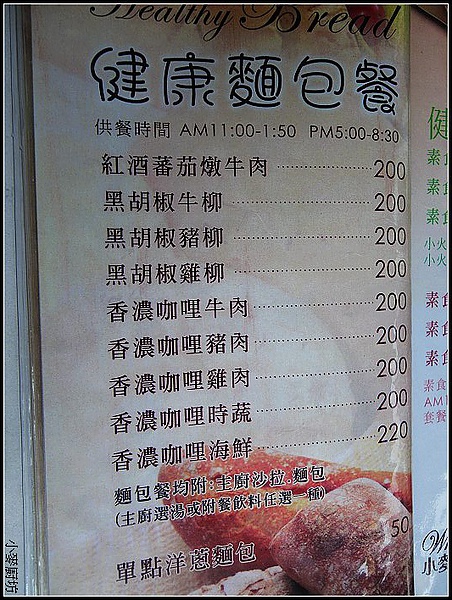 Healthy Bread
健康麵包餐
供餐時間 AM11:00-1:50 PM5:00-8:30
紅酒蕃茄燉牛肉 200
黑胡椒牛柳 200
黑胡椒豬柳 200
黑胡椒雞柳 200
香濃咖哩牛肉 200
香濃咖哩豬肉 200
香濃咖哩雞肉 200
香濃咖哩時蔬 200
香濃咖哩海鮮 220
麵包餐均附:主廚沙拉.麵包
(主廚選湯或附餐飲料任選一種)
單點洋蔥麵包 50
小麥廚坊
健
素食
素食
素食
小火
小火
素食
素食
素食
素食
AM1
套餐
小麥